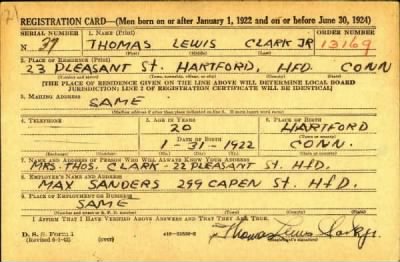 21
REGISTRATION CARD—(Men born on or after January 1, 1922 and on or before June 30, 1924)
SERIAL NUMBER 1. NAME (Print) ORDER NUMBER
N 37 THOMAS LEWIS CLARK JR 13169
2. PLACE OF RESIDENCE (Print)
23 PLEASANT St. HARTFORD, HFD. CONN
(Number and street) (Town, township, village, or city) (County) (State)
[THE PLACE OF RESIDENCE GIVEN ON THE LINE ABOVE WILL DETERMINE LOCAL BOARD
JURISDICTION; LINE 2 OF REGISTRATION CERTIFICATE WILL BE IDENTICAL]
3. MAILING ADDRESS
SAME
[Mailing address if other than place indicated on line 2. If same insert word same]
4. TELEPHONE 5. AGE IN YEARS 6. PLACE OF BIRTH
20 HARTFORD
DATE OF BIRTH (Town or county)
1-31-1922 CONN.
(Exchange) (Number) (Mo.) (Day) (Yr.) (State or country)
7. NAME AND ADDRESS OF PERSON WHO WILL ALWAYS KNOW YOUR ADDRESS
MRS. THOS. CLARK - 22 PLEASANT St. HFD.
8. EMPLOYER'S NAME AND ADDRESS
MAX SANDERS 299 CAPEN St. HFD.
9. PLACE OF EMPLOYMENT OR BUSINESS
SAME
(Number and street or R. F. D. number) (Town) (County) (State)
I AFFIRM THAT I HAVE VERIFIED ABOVE ANSWERS AND THAT THEY ARE TRUE.
D. S. S. Form 1
(Revised 6-1-42) Thomas Lewis Clark jr.
(Registrant's signature)